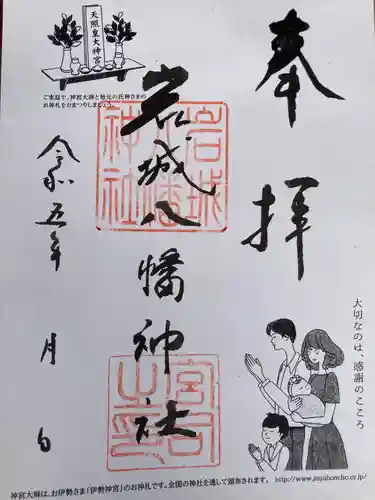 奉拝
岩城八幡神社
令和五年 月 日
岩城八幡神社
宮司之印
天照皇大神宮
ご家庭で、神宮大麻と地元の氏神さまの
お神札をおまつりしましょう。
大切なのは、感謝のこころ
http://www.jinjahoncho.or.jp/
神宮大麻は、お伊勢さま「伊勢神宮」のお神札です。全国の神社を通して頒布されます。